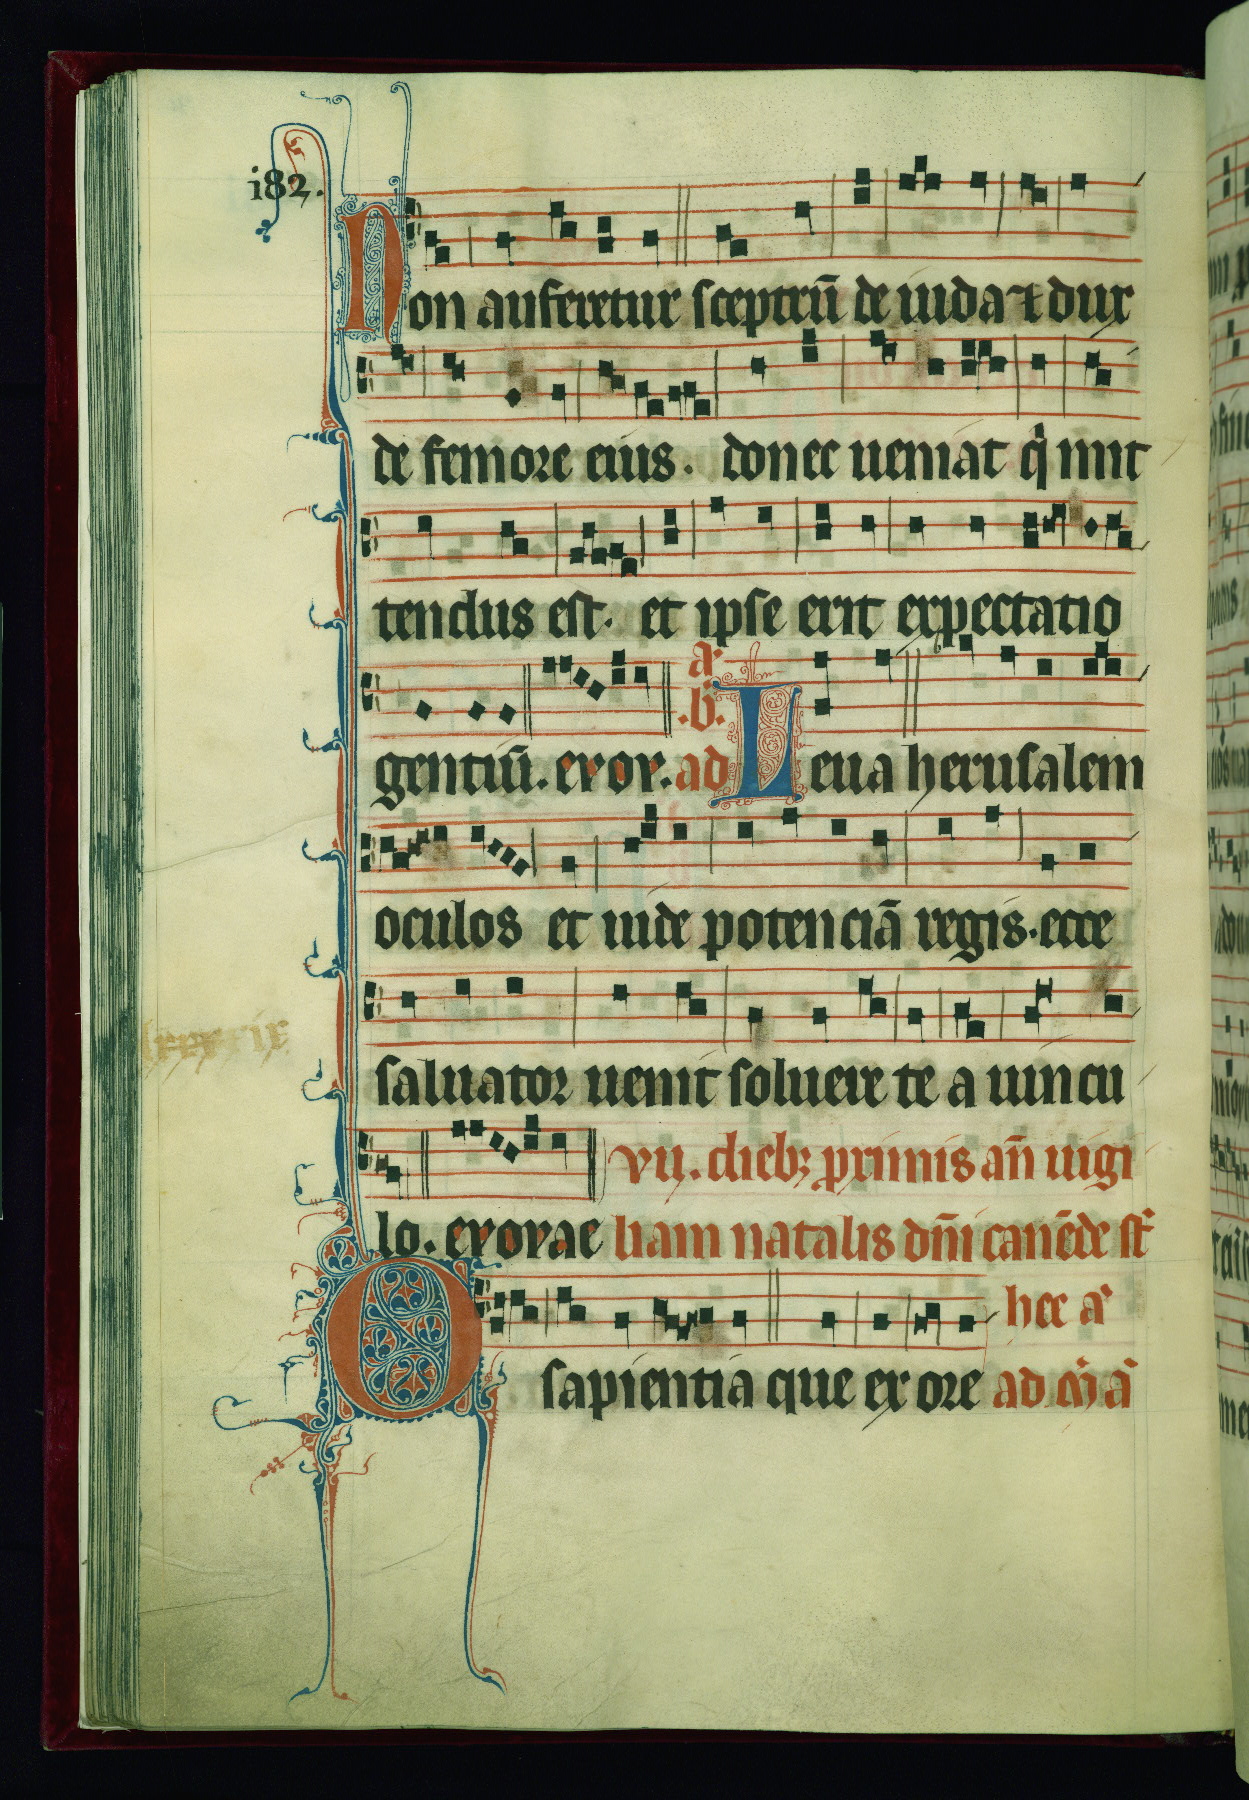 i82.
Non auferetur sceptrū de iuda ⁊ dux
de femore eius. donec ueniat q̄ mit
tendus est. et ipse erit expectatio
a᷒
.b.
gentiū. evov. ad Leua herusalem
oculos et uide potenciā regis. ecce
saluator uenit soluere te a uincu
vij. dieb; primis añ uigi
lo. evovae liam natalis dñi canēde st̄
hee a᷒
O sapientia que ex ore ad